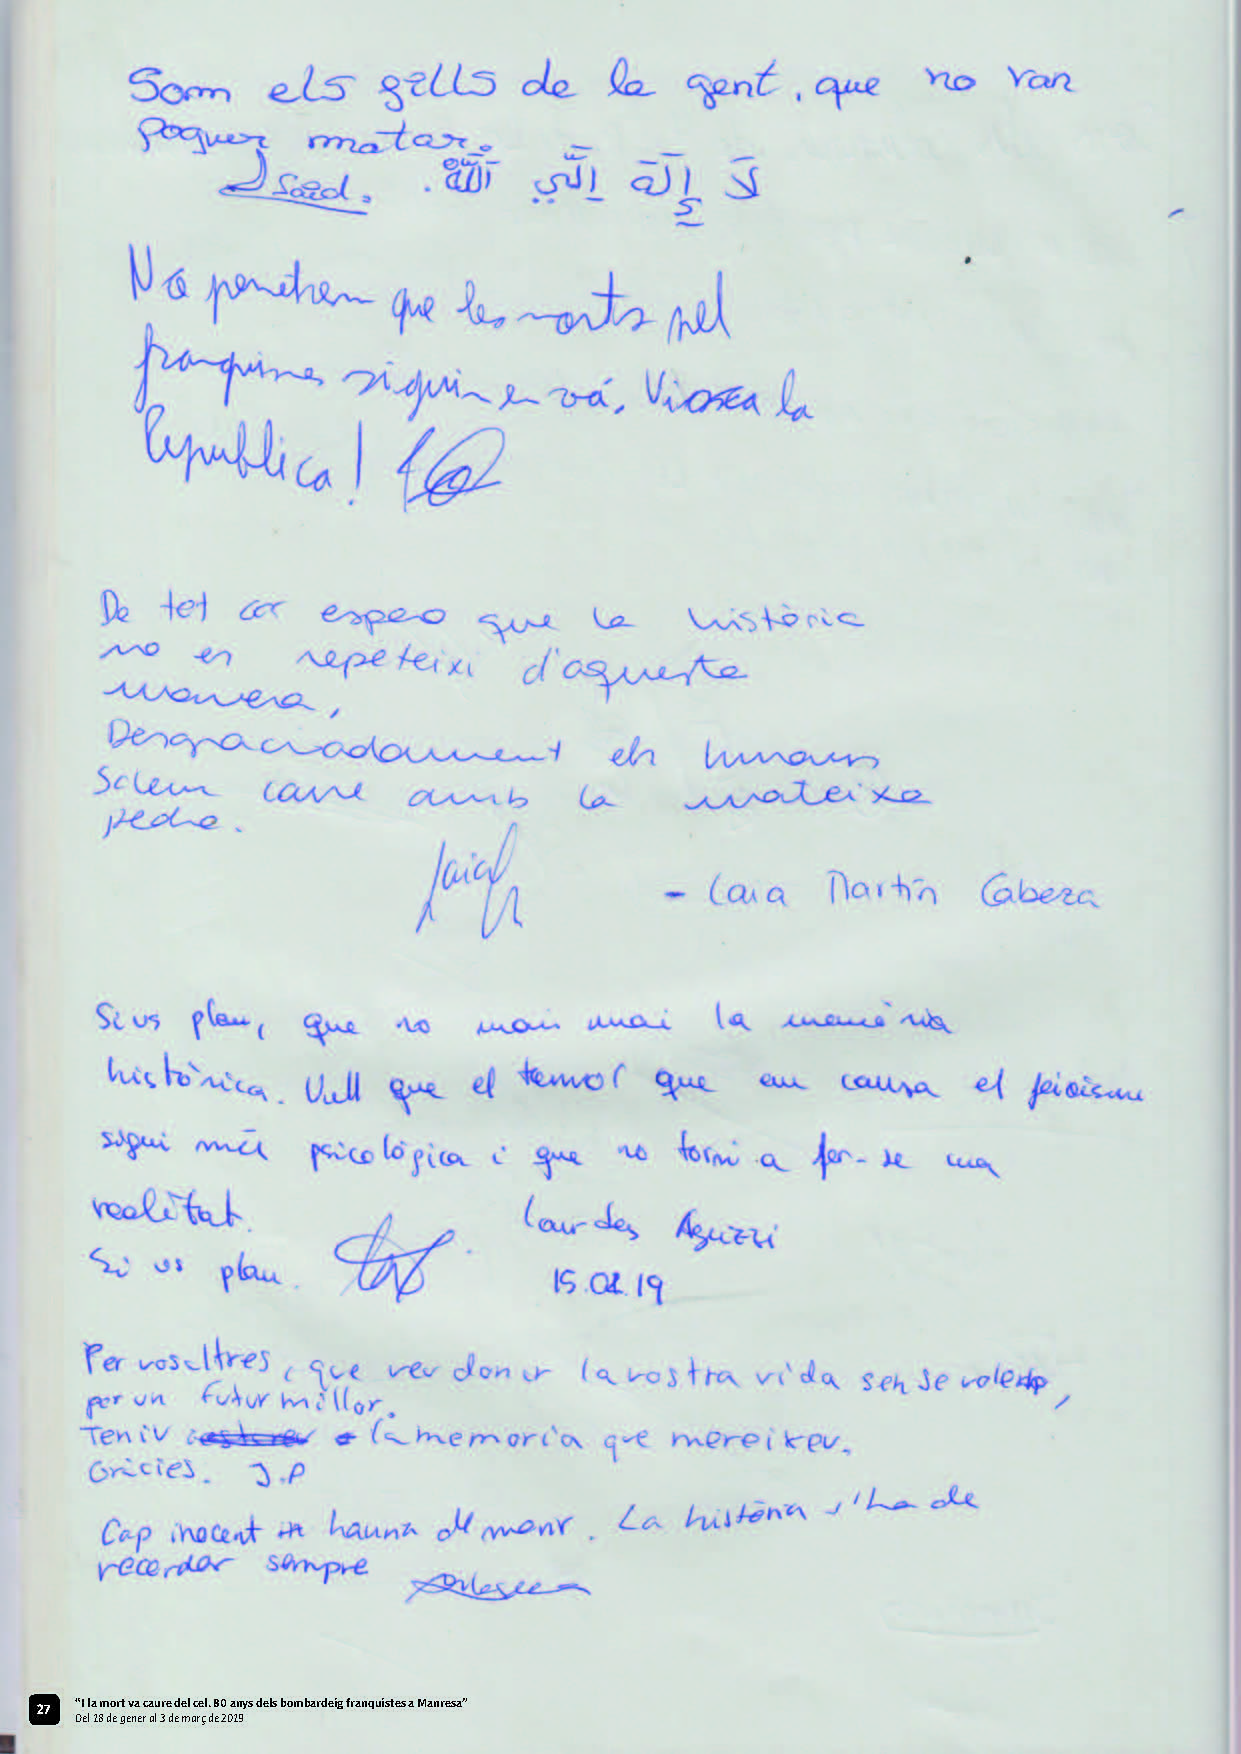 Som els fills de la gent, que no van
poguer matar.
Said. لَا إِلَهَ إِلَّي اللَّه.
No penetrem que les morts pel
franquisme siguin en vá. Visca la
Republica!
De tot cor espero que la història
no es repeteixi d'aquesta
manera,
Desgraciadament els humans
Solem caure amb la mateixa
pedra.
- Laia Martín Cabeza
Si us plau, que no mori mai la memòria
històrica. Vull que el temor que em causa el feixisme
sigui més psicológica i que no torni a fer-se una
realitat.
Lourdes Aguzzi
Si us plau.
15.02.19
Per vosaltres, que veu donar la vostra vida sense voler,
per un futur millor.
Teniu la memoria que mereixeu.
Gràcies. J.P
Cap inocent hauria de morir. La història s'ha de
recordar sempre
27
"I la mort va caure del cel. 80 anys dels bombardeig franquistes a Manresa"
Del 18 de gener al 3 de març de 2019